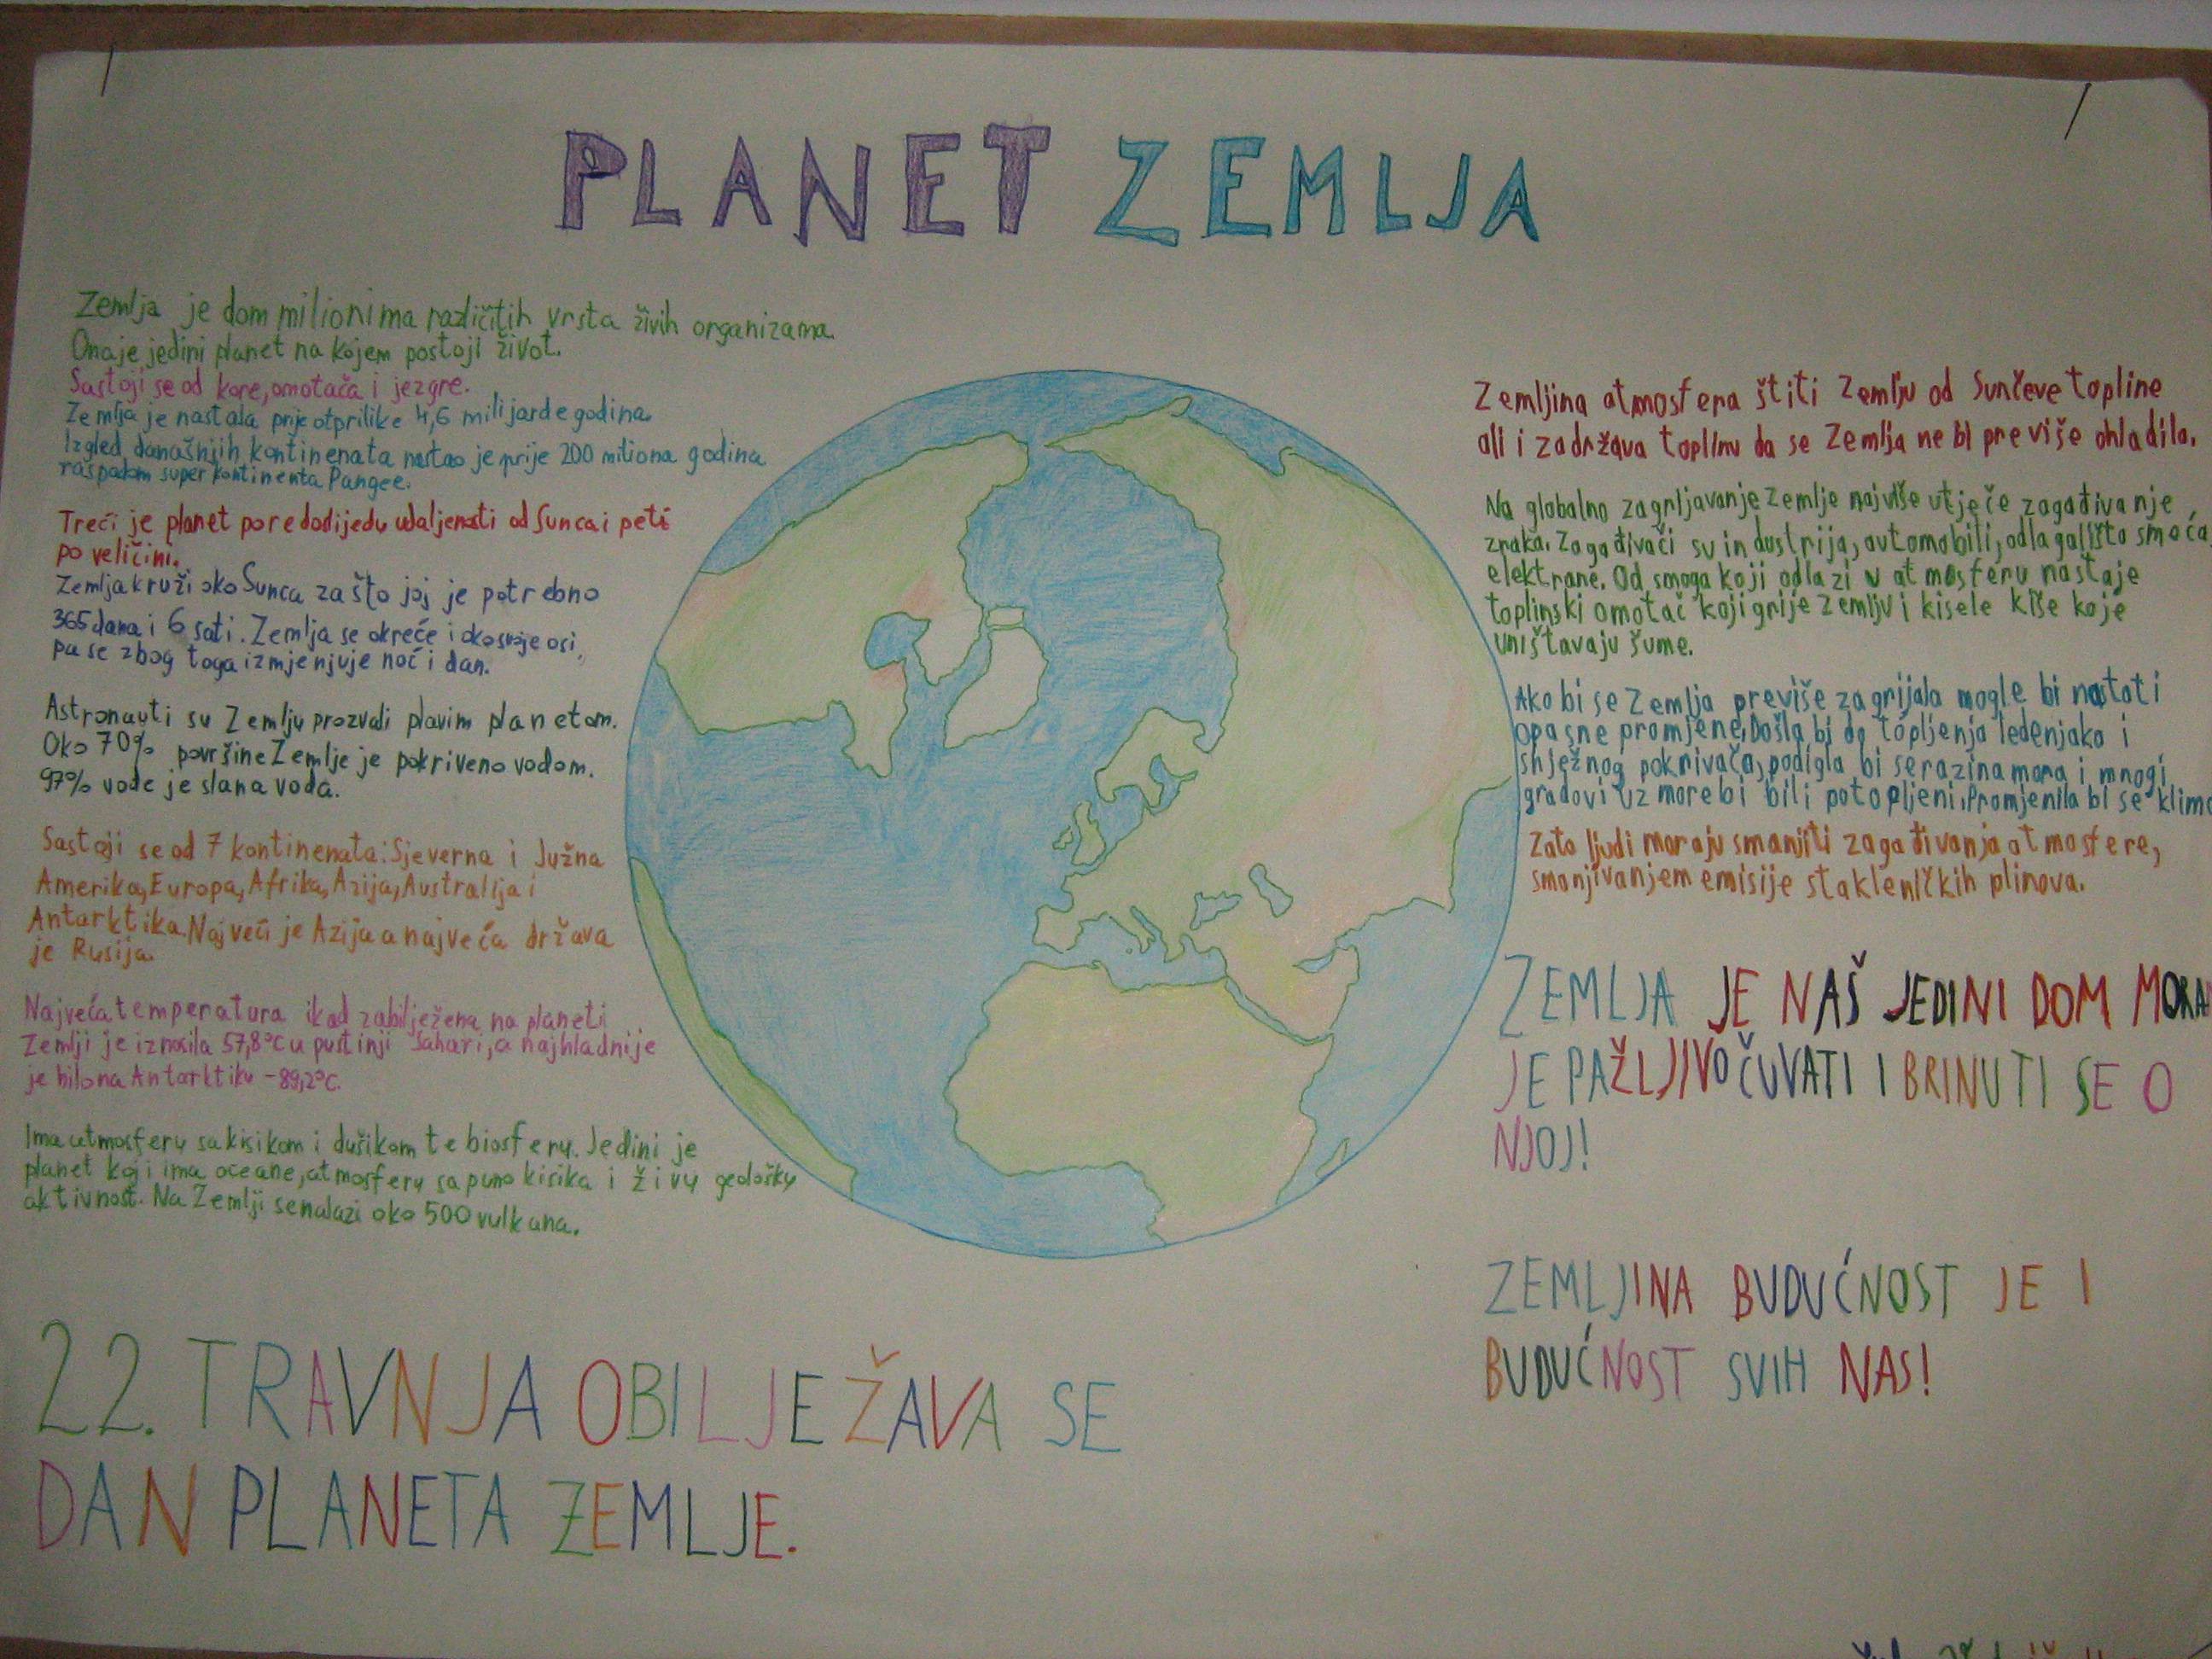 PLANET ZEMLJA
Zemlja je dom milionima različitih vrsta živih organizama.
Ona je jedini planet na kojem postoji život.
Sastoji se od kore, omotača i jezgre.
Zemlja je nastala prije otprilike 4,6 milijarde godina.
Izgled današnjih kontinenata nastao je prije 200 miliona godina
raspadom super kontinenta Pangee.
Treći je planet po redoslijedu udaljenosti od Sunca i peti
po veličini.
Zemlja kruži oko Sunca za što joj je potrebno
365 dana i 6 sati. Zemlja se okreće i oko svoje osi,
pa se zbog toga izmjenjuje noć i dan.
Astronauti su Zemlju prozvali plavim planetom.
Oko 70% površine Zemlje je pokriveno vodom.
97% vode je slana voda.
Sastoji se od 7 kontinenata: Sjeverna i Južna
Amerika, Europa, Afrika, Azija, Australija i
Antarktika. Najveći je Azija a najveća država
je Rusija.
Najveća temperatura ikad zabilježena na planeti
Zemlji je iznosila 57,8°C u pustinji Sahari, a najhladnije
je bilo na Antarktiku -89,2°C.
Ima atmosferu sa kisikom i dušikom te biosferu. Jedini je
planet koji ima oceane, atmosferu sa puno kisika i živu geološku
aktivnost. Na Zemlji se nalazi oko 500 vulkana.
22. TRAVNJA OBILJEŽAVA SE
DAN PLANETA ZEMLJE.
Zemljina atmosfera štiti Zemlju od Sunčeve topline
ali i zadržava toplinu da se Zemlja ne bi previše ohladila.
Na globalno zagrljavanje Zemlje najviše utječe zagađivanje
zraka. Zagađivači su industrija, automobili, odlagališta smeća,
elektrane. Od smoga koji odlazi u atmosferu nastaje
toplinski omotač koji grije Zemlju i kisele kiše koje
uništavaju šume.
Ako bi se Zemlja previše zagrijala mogle bi nastati
opasne promjene. Došlo bi do topljenja ledenjaka i
snježnog pokrivača, podigla bi se razina mora i mnogi
gradovi uz more bi bili potopljeni. Promjenila bi se klima
Zato ljudi moraju smanjiti zagađivanja atmosfere,
smanjivanjem emisije stakleničkih plinova.
ZEMLJA JE NAŠ JEDINI DOM MORA
JE PAŽLJIVO ČUVATI I BRINUTI SE O
NJOJ!
ZEMLJINA BUDUĆNOST JE I
BUDUĆNOST SVIH NAS!